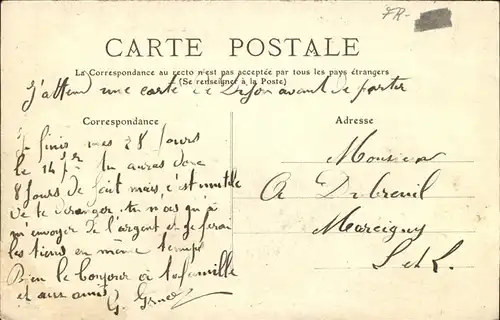 FR-
CARTE POSTALE
La Correspondance au recto n'est pas acceptée par tous les pays étrangers
(Se renseigner à la Poste)
J'attend une carte de Dijon avant de partir
Correspondance
Je finis mes 28 Jours
le 14 tu auras donc
8 Jours de fait mais c'est inutile
de te déranger, tu n'as qu'à
m'envoyer de l'argent et je ferai
les tiens en même temps
Bien le bonjour à ta famille
et aux amis
Adresse
Monsieur
A Dubreuil
Marcigny
S et L.